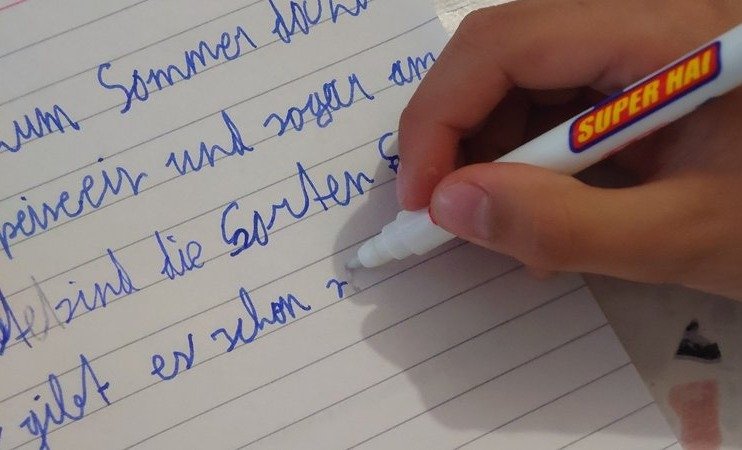 zum Sommer doch
peiseeis und sogar am
sind die Sorten
gibt es schon
SUPER HAI